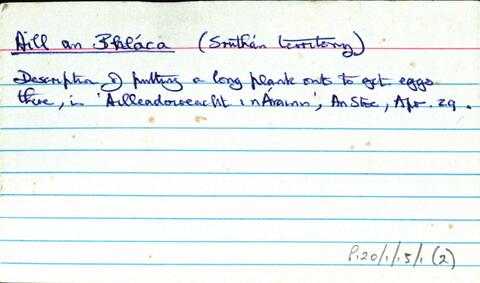 Aill an Phláca (Sruthán territory)
Description of putting a long plank out to get eggs
there, in 'Ailleadoireacht in Árainn', An Stoc, Apr. 29.
P120/1/15/1 (2)